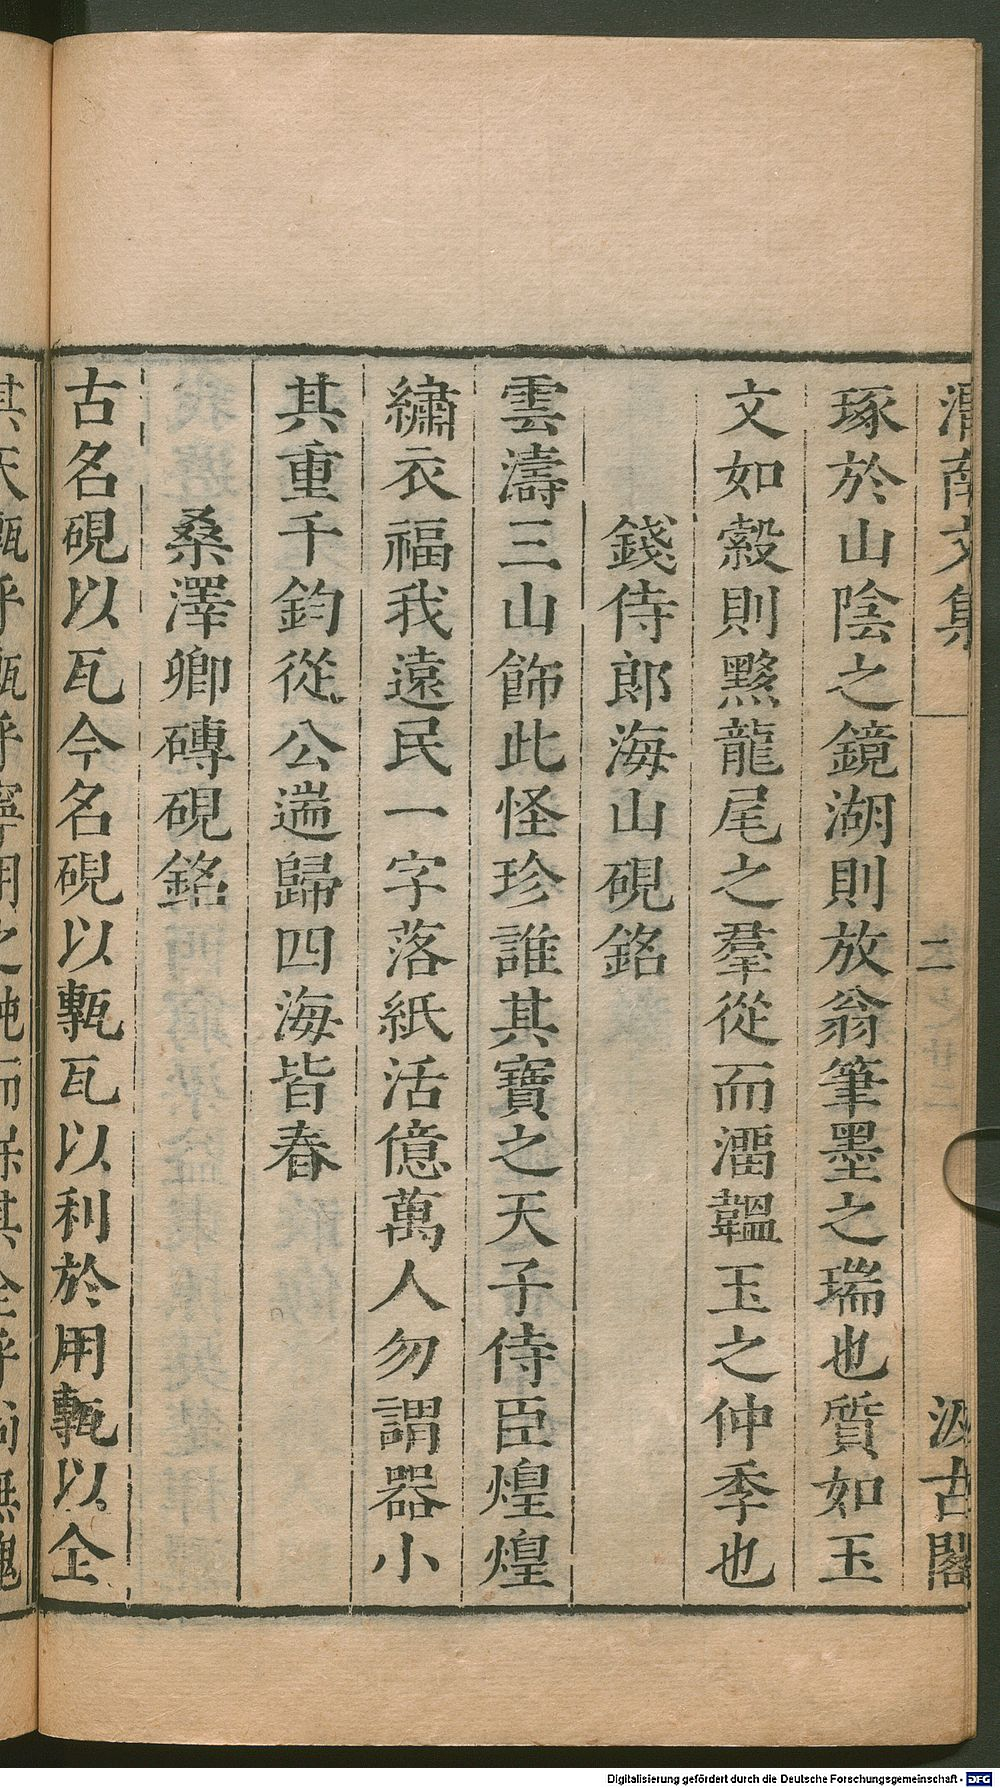 渭南文集 二 汲古閣
琢於山陰之鏡湖則放翁筆墨之瑞也質如玉
文如縠則黟龍尾之羣從而淄韞玉之仲季也
錢侍郎海山硯銘
雲濤三山飾此怪珍誰其寶之天子侍臣煌煌
繡衣福我遠民一字落紙活億萬人勿謂器小
其重千鈞從公遄歸四海皆春
桑澤卿磚硯銘
古名硯以瓦今名硯以甎瓦以利於用甎以仝
其天甎乎瓶乎寧用之鈍而保其全乎尚無愧
Digitalisierung gefördert durch die Deutsche Forschungsgemeinschaft - DFG